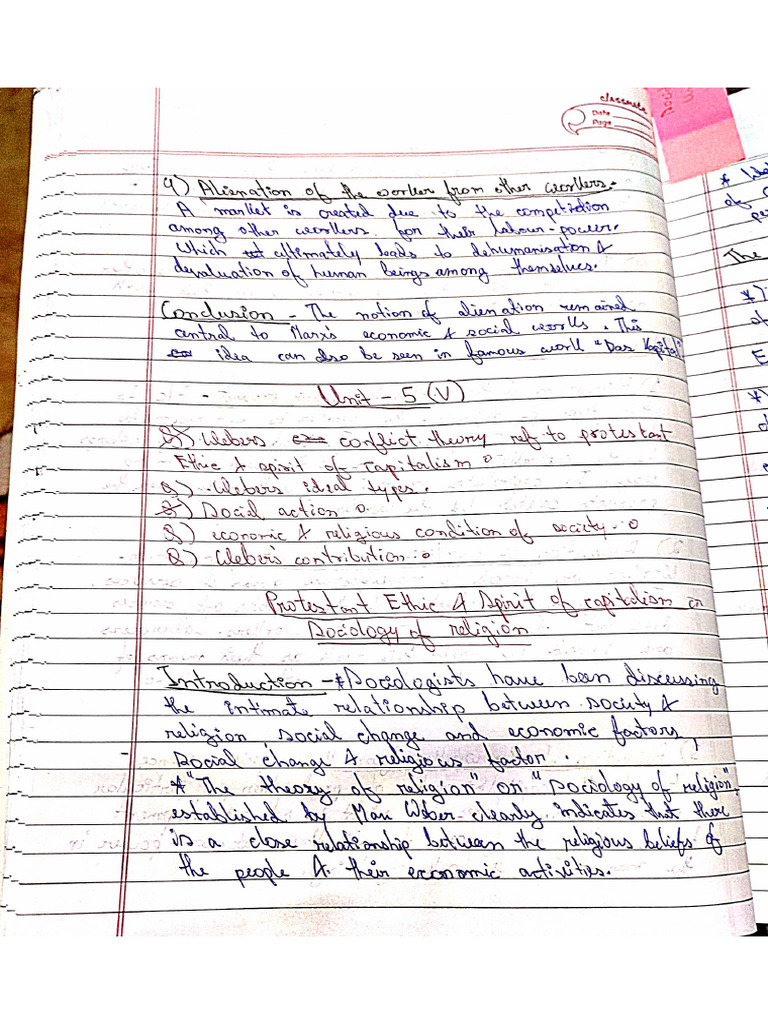 classmate
Date
Page
4) Alienation of the worker from other workers.
A market is created due to the competition
among other workers for their labour-power.
Which ultimately leads to dehumanisation &
devaluation of human beings among themselves.
Conclusion - The notion of alienation remained
central to Marx's economic & social works. This
idea can also be seen in famous work "Das Kapital"
Unit - 5 (V)
Q) Webers conflict theory ref to protestant
Ethic & spirit of capitalism
Q) Webers ideal types.
Q) Social action
Q) economic & religious condition of society.
Q) Weber's contribution.
Protestant Ethic & Spirit of capitalism or
Sociology of religion
Introduction - *Sociologists have been discussing
the intimate relationship between society &
religion, social change and economic factors,
Social change & religious factor.
* "The theory of religion" or "Sociology of religion"
established by Max Weber clearly indicates that there
is a close relationship between the religious beliefs of
the people & their economic activities.
The